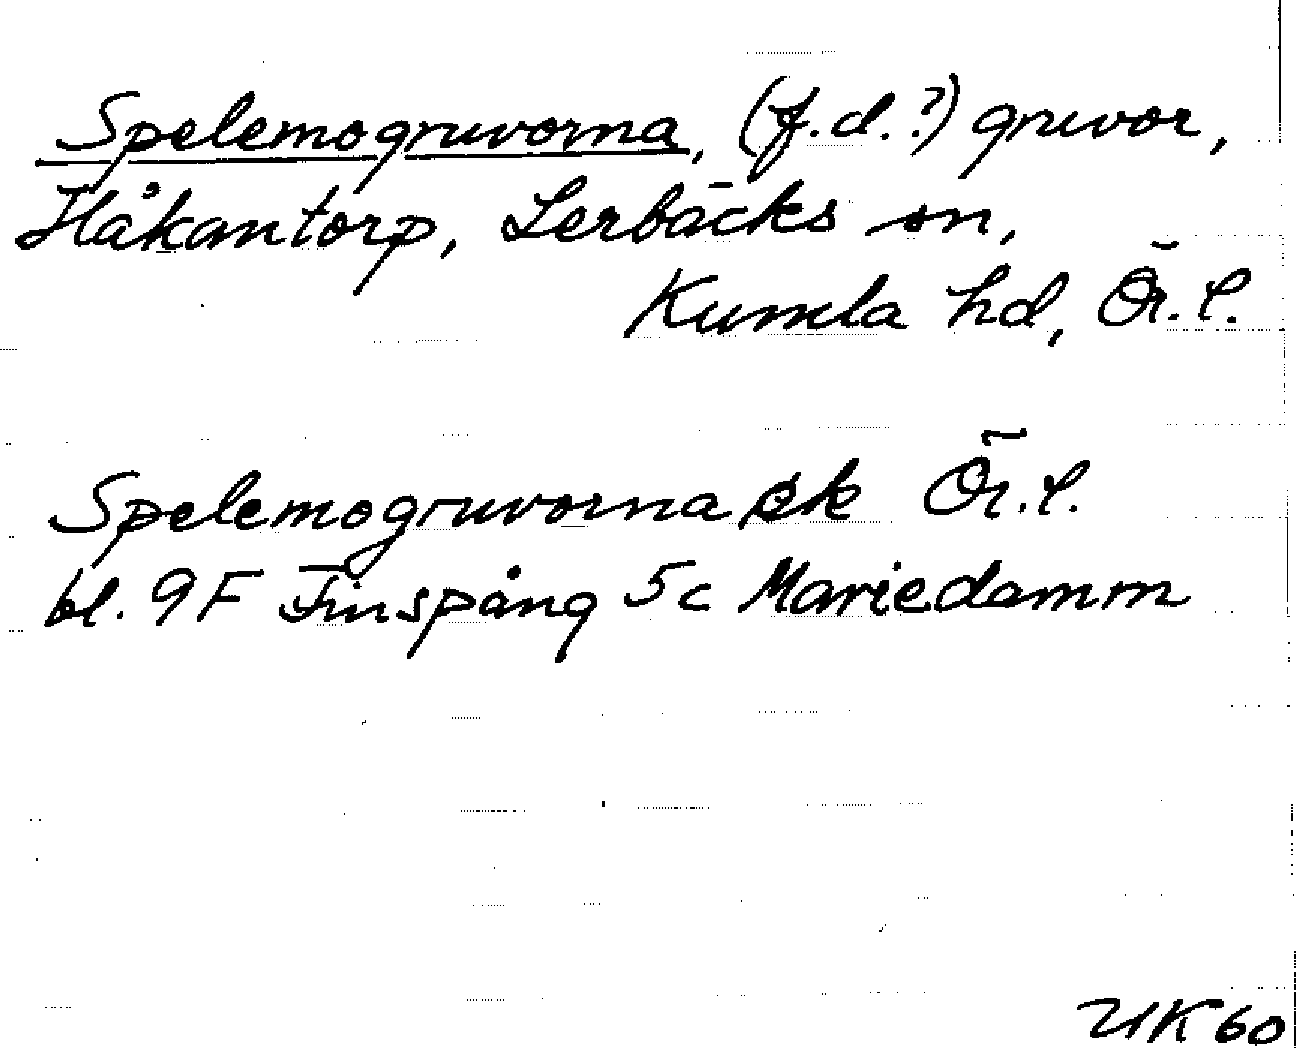 Spelemogruvorna, (f.d.?) gruvor,
Håkantorp, Lerbäcks sn,
Kumla hd, Ör.l.
Spelemogruvorna ek Ör.l.
bl. 9F Finspång 5c Mariedamm
UK60